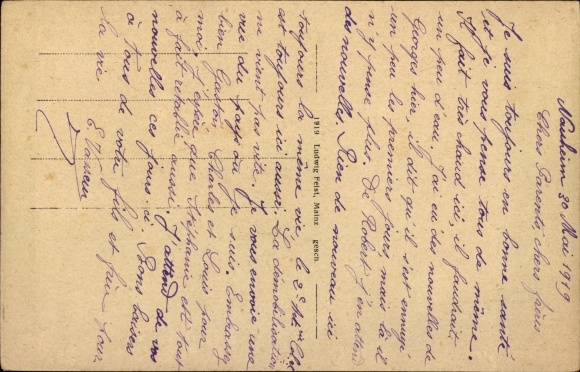 Mai 1919
Chers Parents, chers frères
Je suis toujours en bonne santé
et je vous pense tous de même.
Il fait très chaud ici, il faudrait
un peu d'eau. J'ai eu des nouvelles de
Georges hier, il dit qu'il s'est ennuyé
un peu les premiers jours mais là il
n'y pense plus. De Robert j'en attend
des nouvelles. Rien de nouveau ici
toujours la même vie le 2e
est toujours ici aussi. La démobilisation
ne vient pas vite. Je vous envoie une
vue du pays où je suis. Embrassez
bien Gaston, Charles et Louis pour
moi. J'espère que Stéphanie est tout
à fait rétablie aussi. J'attend de vos
nouvelles ces jours ci. Bons baisers
à tous de votre fils et frère pour
la vie
1919 Ludwig Feist, Mainz gesch.